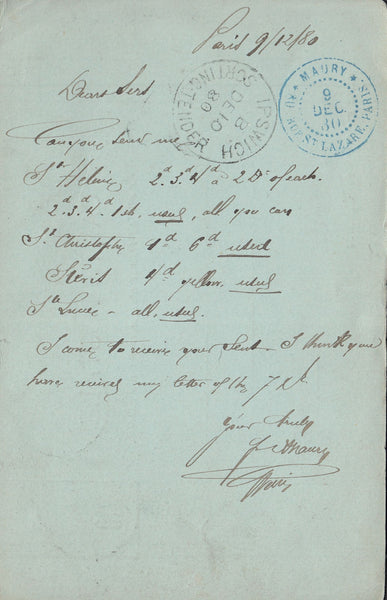 Paris 9/12/80
MAURY
9
DEC.
80
RUE ST LAZARE, PARIS
IPSWICH
SORTING-TENDER
B
DE 10
80
Dear Sirs
Can you send me
St Helena 2d. 3d. 4d à 2 Dz of each.
2d. 3d. 4d. 1sh. used, all you can
St Christophe 1d 6d used
Nevis 4d yellow. used
Ste Lucie - all. used.
I come to receive your sent - I think you
have received my letter of the 7 Dr.
Your truly
Maury
Paris